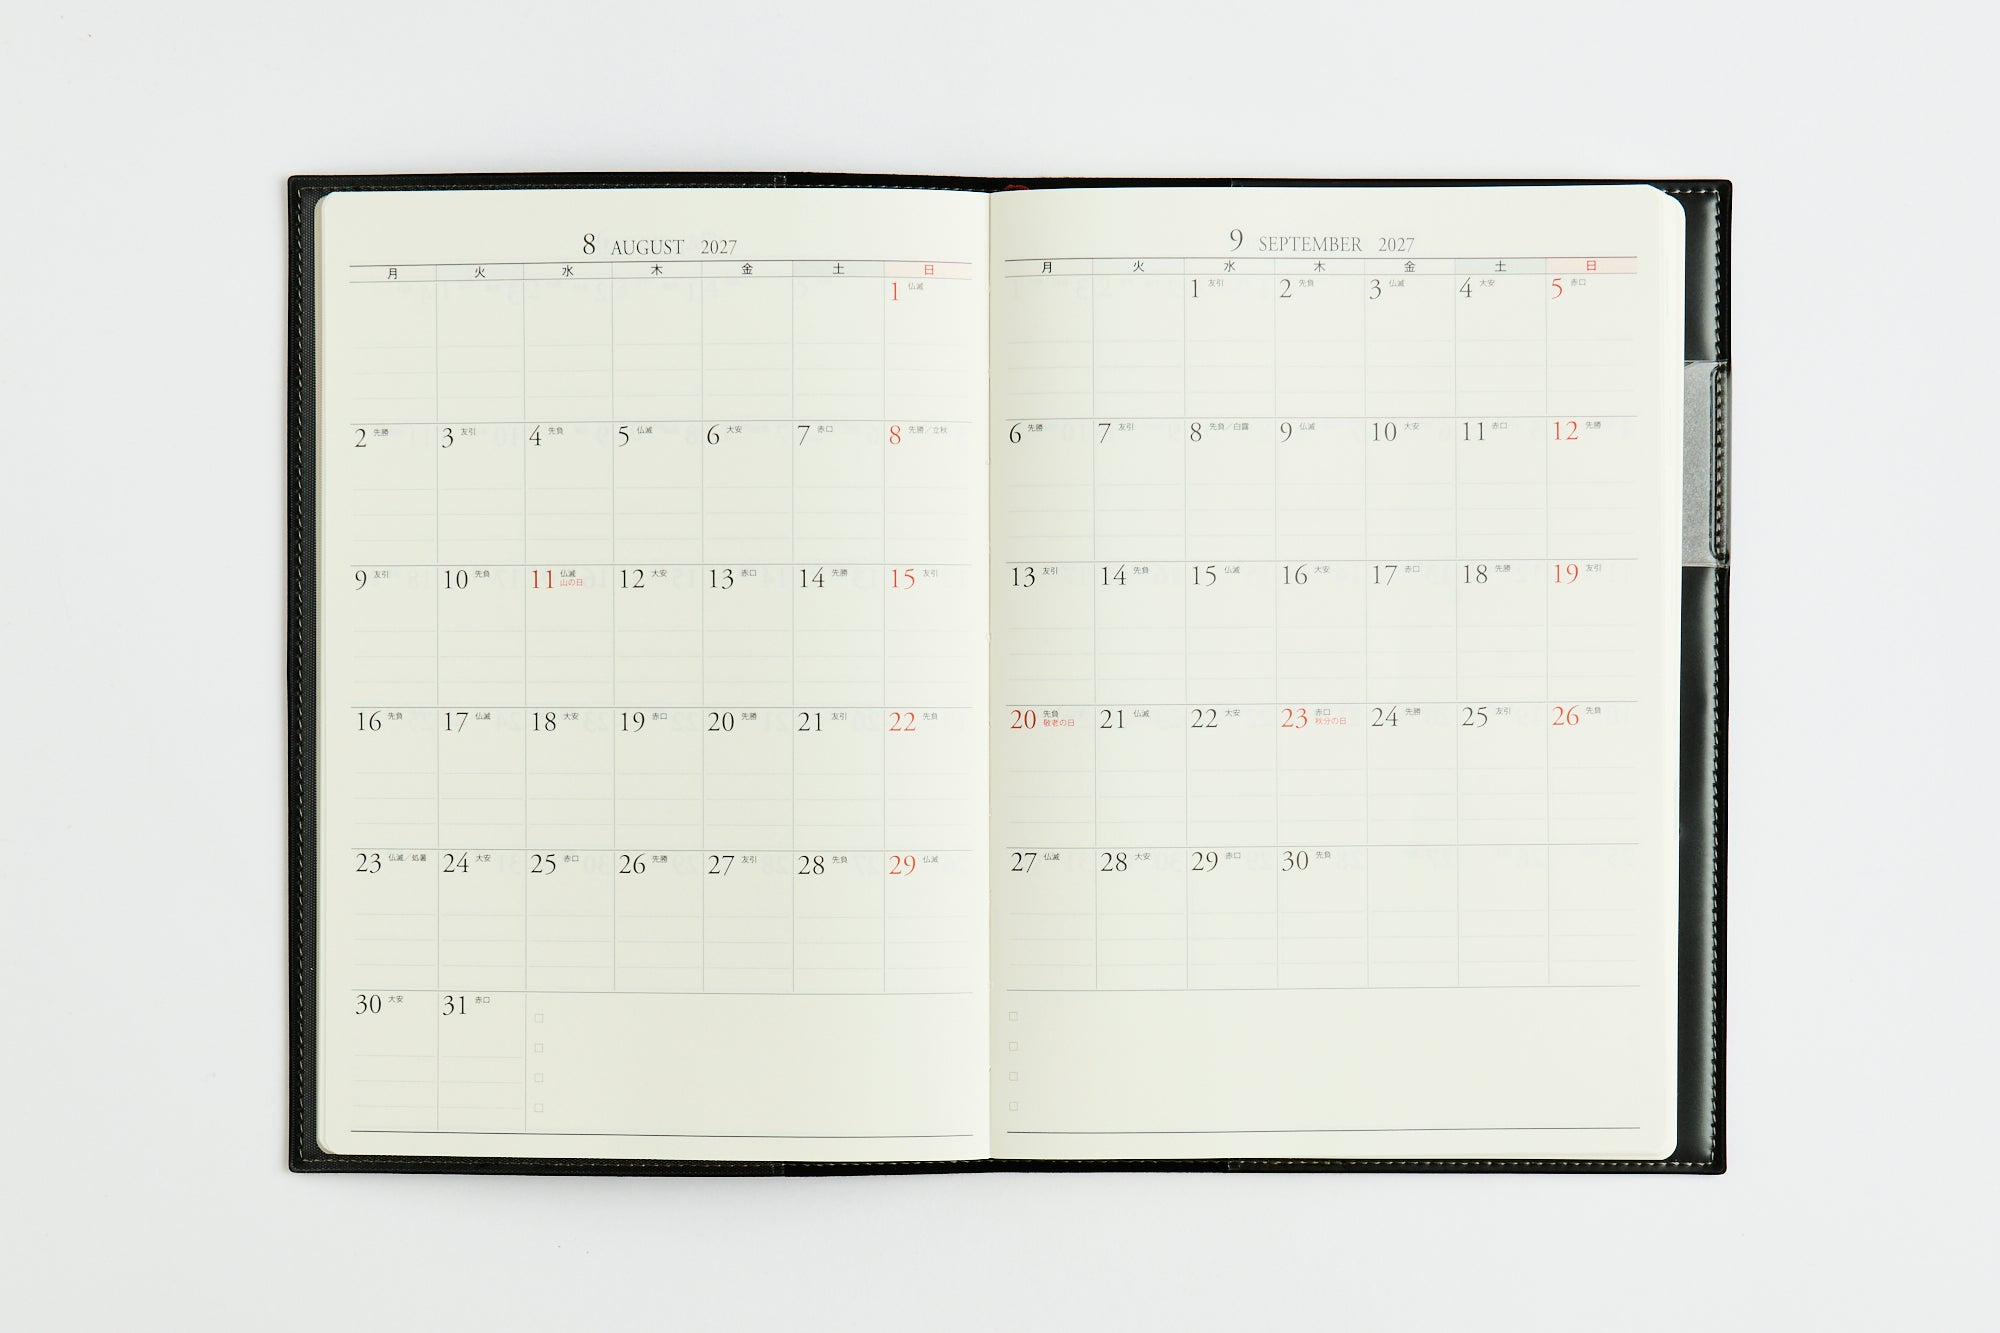 8 AUGUST 2027
月 火 水 木 金 土 日
1 仏滅
2 先勝 3 友引 4 先負 5 仏滅 6 大安 7 赤口 8 先勝／立秋
9 友引 10 先負 11 仏滅 12 大安 13 赤口 14 先勝 15 友引
山の日
16 先負 17 仏滅 18 大安 19 赤口 20 先勝 21 友引 22 先負
23 仏滅／処暑 24 大安 25 赤口 26 先勝 27 友引 28 先負 29 仏滅
30 大安 31 赤口
9 SEPTEMBER 2027
月 火 水 木 金 土 日
1 友引 2 先負 3 仏滅 4 大安 5 赤口
6 先勝 7 友引 8 先負／白露 9 仏滅 10 大安 11 赤口 12 先勝
13 友引 14 先負 15 仏滅 16 大安 17 赤口 18 先勝 19 友引
20 先負 21 仏滅 22 大安 23 赤口 24 先勝 25 友引 26 先負
敬老の日 秋分の日
27 仏滅 28 大安 29 赤口 30 先負